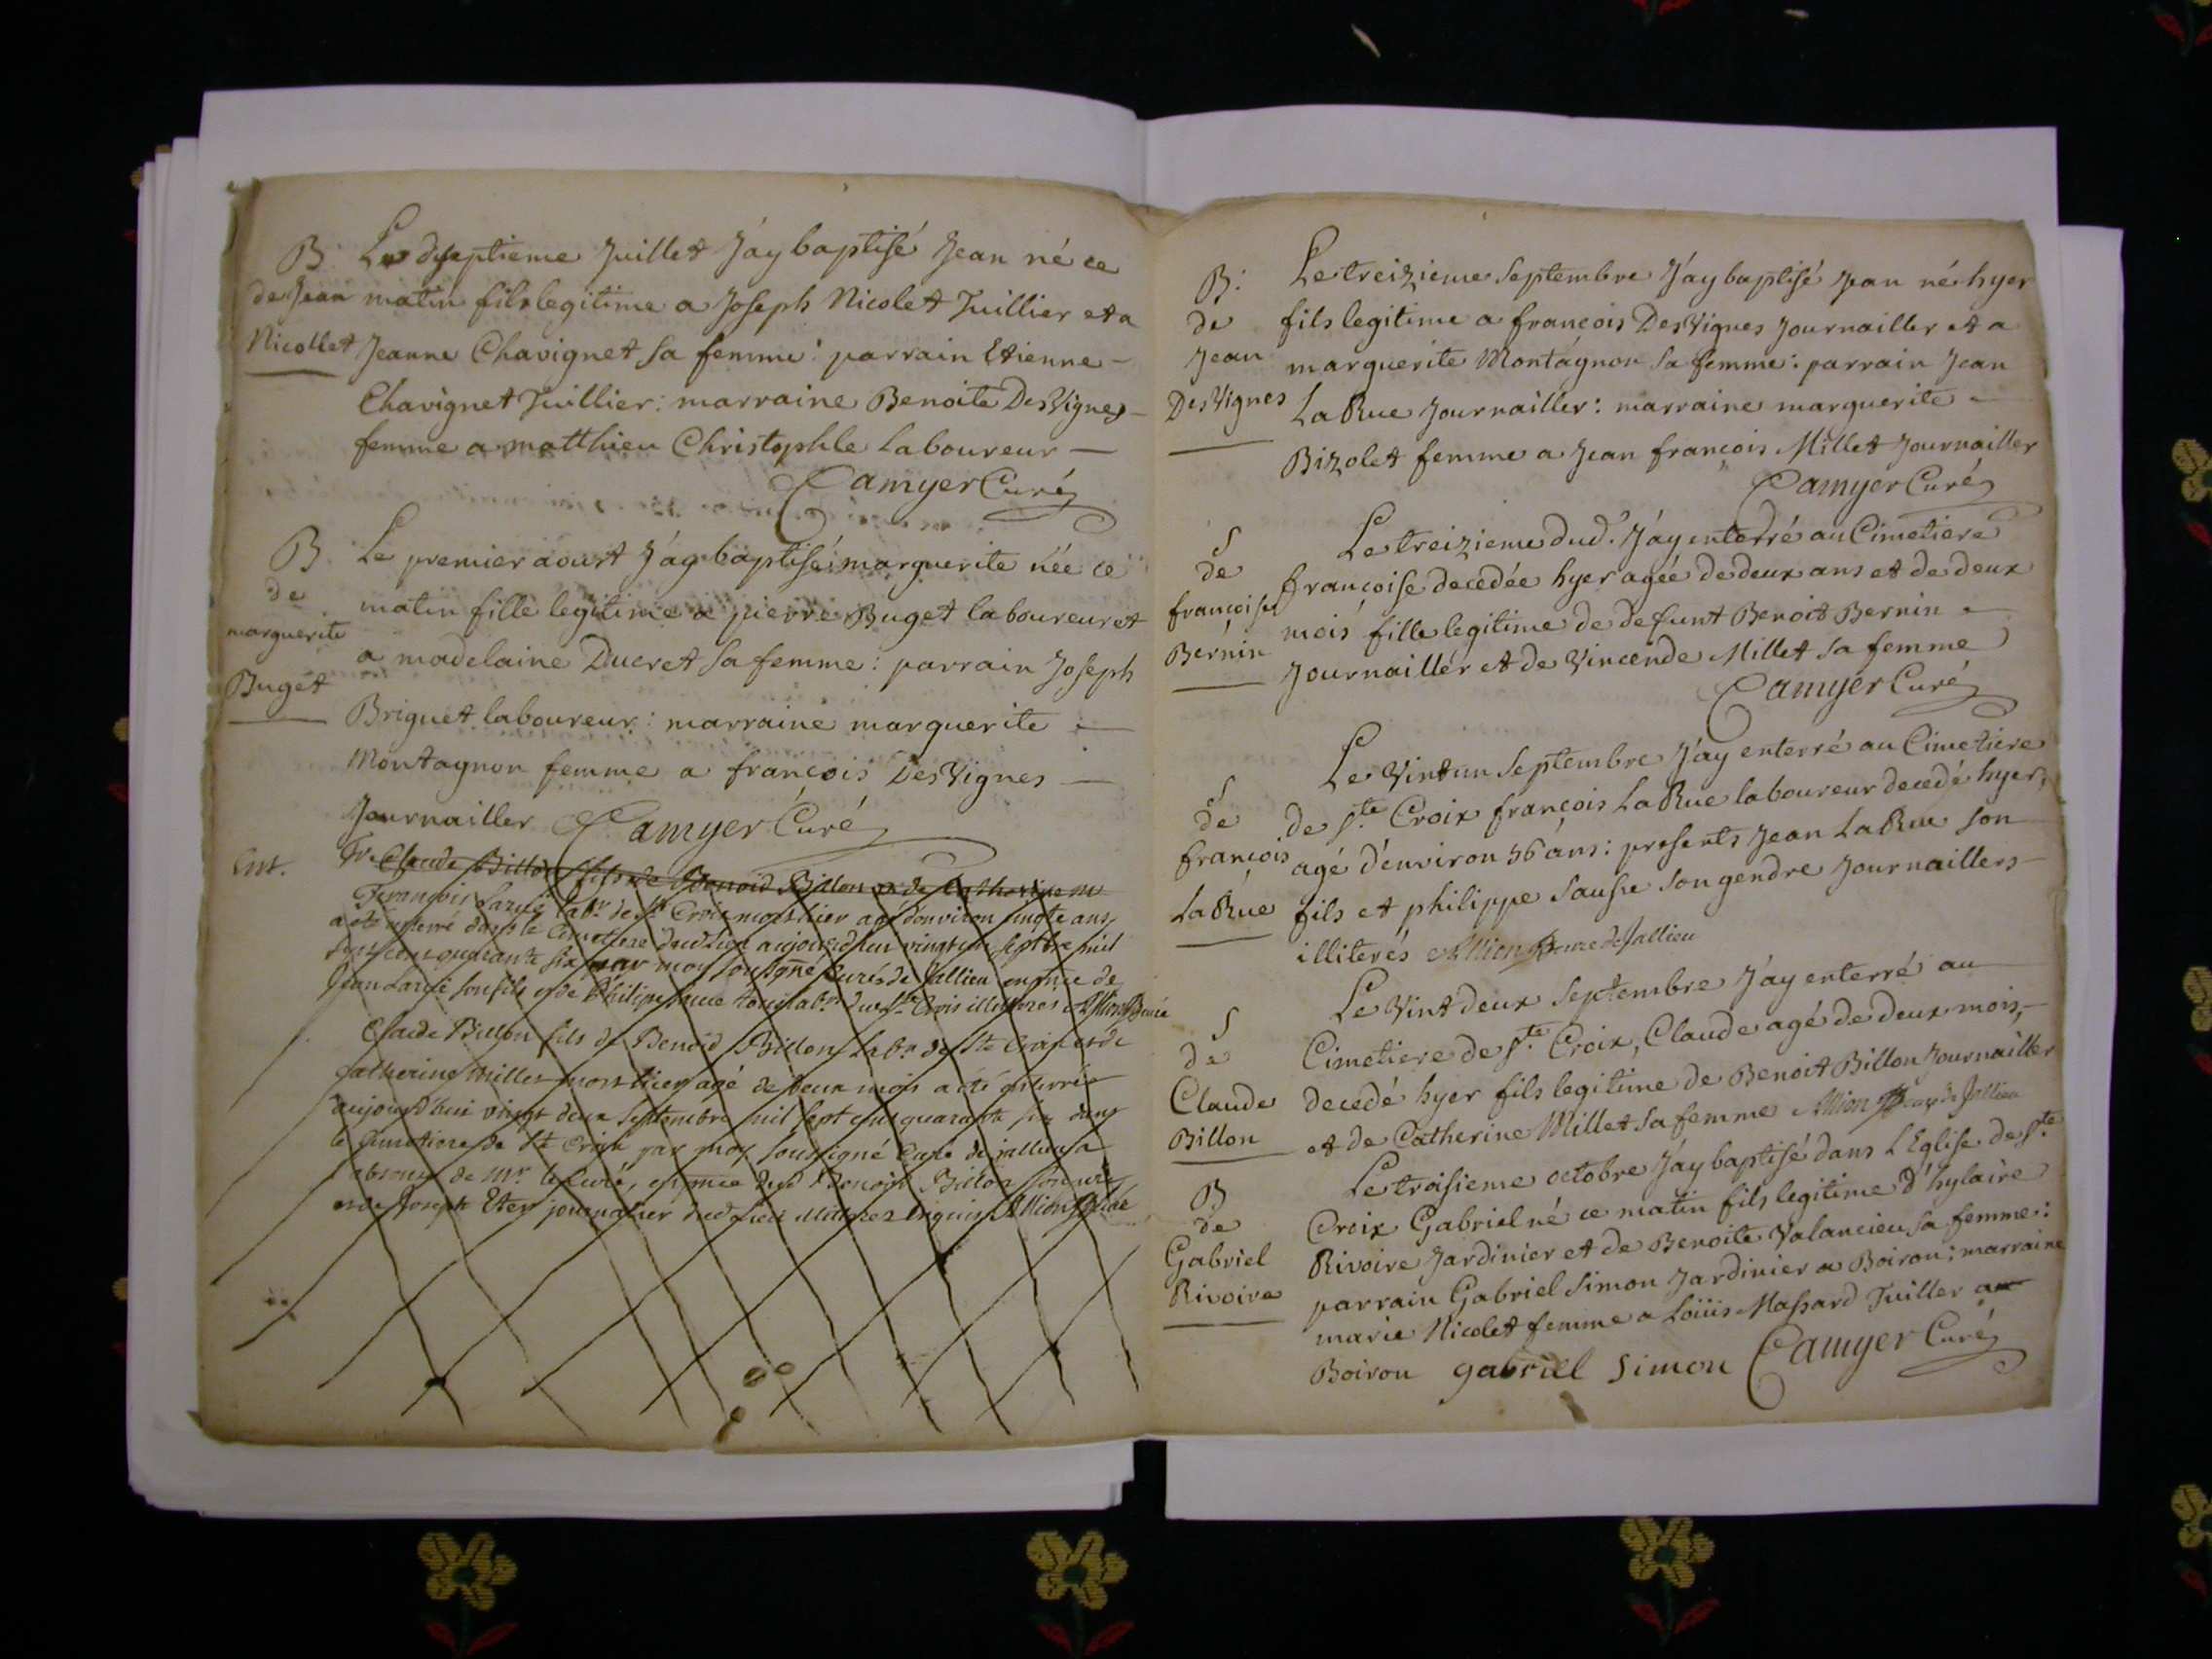 B Le diseptieme Juillet J'ay baptisé Jean né ce
de Jean matin fils legitime a Joseph Nicolet Tuillier et a
Nicollet Jeanne Chavignet sa femme: parrain Etienne
Chavignet Tuillier: marraine Benoite DesVignes
femme a matthieu Christophle laboureur
Camyer Curé
B Le premier aoust J'ay baptisé marguerite née ce
de matin fille legitime a pierre Buget laboureur et
marguerite a madelaine Ducret sa femme: parrain Joseph
Buget Briguet laboureur: marraine marguerite
Montagnon femme a françois DesVignes
Journailler Camyer Curé
Ent. Claude Billon fils de Benoid Billon et de Catherine m
François Larue labr de Ste Croix mort hier agé d'environ ans
a été enterré dans le Cimetiere dud lieu aujourd'hui vingt un septbre mil
sept cens quarante six par moy soussigné curé de Jallieu en pnce de
Jean Larue son fils et de Philipe labr de Ste Croix illiteres Allion Curé
Claude Billon fils de Benoid Billon labr de Ste Croix et de
Catherine Millet mort hier agé de deux mois a été enterré
aujourd'hui vingt deux septembre mil sept cens quarante six dans
le Cimetiere de Ste Croix par moy soussigné Curé de jallieu a
absence de Mr le Curé, en pnce dud Benoit Billon son
et de Joseph journalier dud lieu illiteres Allion Curé
B: Le treizieme Septembre J'ay baptisé Jean né hyer
de fils legitime a françois DesVignes Journailler et a
Jean marguerite Montagnon sa femme: parrain Jean
DesVignes LaRue Journailler: marraine marguerite
Bizolet femme a Jean françois Millet Journailler
Camyer Curé
S Le treizieme dud. J'ay enterré au Cimetiere
de françoise decedée hyer agée de deux ans et de deux
françoise mois fille legitime de defunt Benoit Bernin
Bernin Journailler et de Vincende Millet sa femme
Camyer Curé
S Le Vint un Septembre J'ay enterré au Cimetiere
de de Ste Croix françois LaRue laboureur decedé hyer,
françois agé d'environ 56 ans: presents Jean LaRue son
LaRue fils et philippe Sause son gendre Journaillers
illiterés Allion curé de Jallieu
S Le Vint deux Septembre J'ay enterré au
de Cimetiere de Ste Croix, Claude agé de deux mois,
Claude decedé hyer fils legitime de Benoit Billon Journailler
Billon et de Catherine Millet sa femme Allion curé de Jallieu
B Le troisieme octobre J'ay baptisé dans L'Eglise de Ste
de Croix Gabriel né ce matin fils legitime d'hylaire
Gabriel Rivoire Jardinier et de Benoite Valancieu sa femme:
Rivoire parrain Gabriel Simon Jardinier a Boiron; marraine
marie Nicolet femme a Loüis Massard Tuiller a
Boiron gabriel Simon Camyer Curé